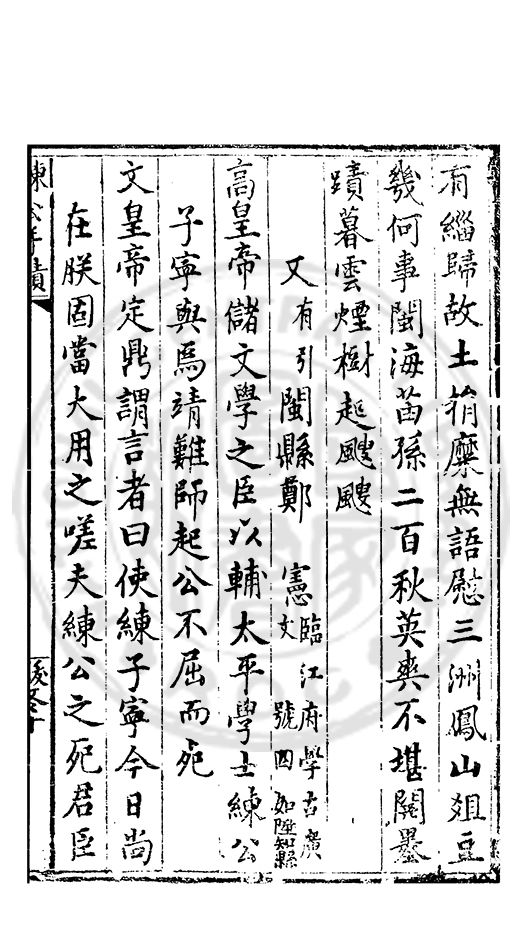 有緇歸故土揹糜無語慰三洲鳳山俎豆
幾何事閩海苗孫二百秋英爽不堪關墨
蹟暮雲煙樹起颼颼
又有引閩縣鄭憲文臨江府學古廣號四如陞知縣
高皇帝儲文學之臣以輔太平學士練公
子寧與焉靖難師起公不屈而死
文皇帝定鼎謂言者曰使練子寧今日尚
在朕固當大用之嗟夫練公之死君臣